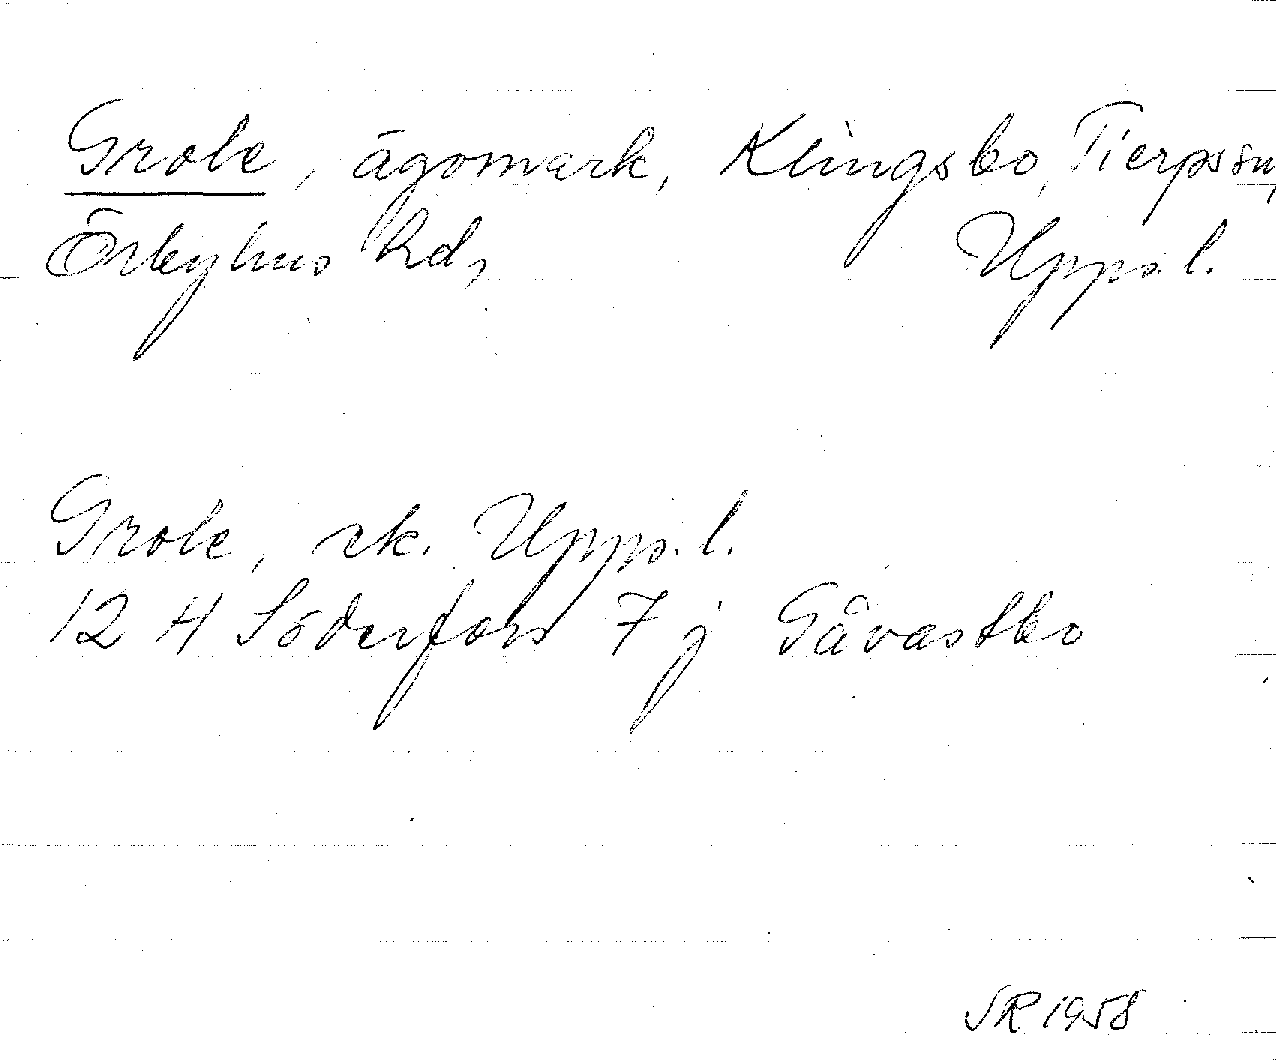 Grole, ägomark, Klingsbo, Tierps sn,
Örbyhus hd, Uppl.
Grole, ek. Uppl.
12 H Söderfors 7 j Gåvastbo
SR 1958